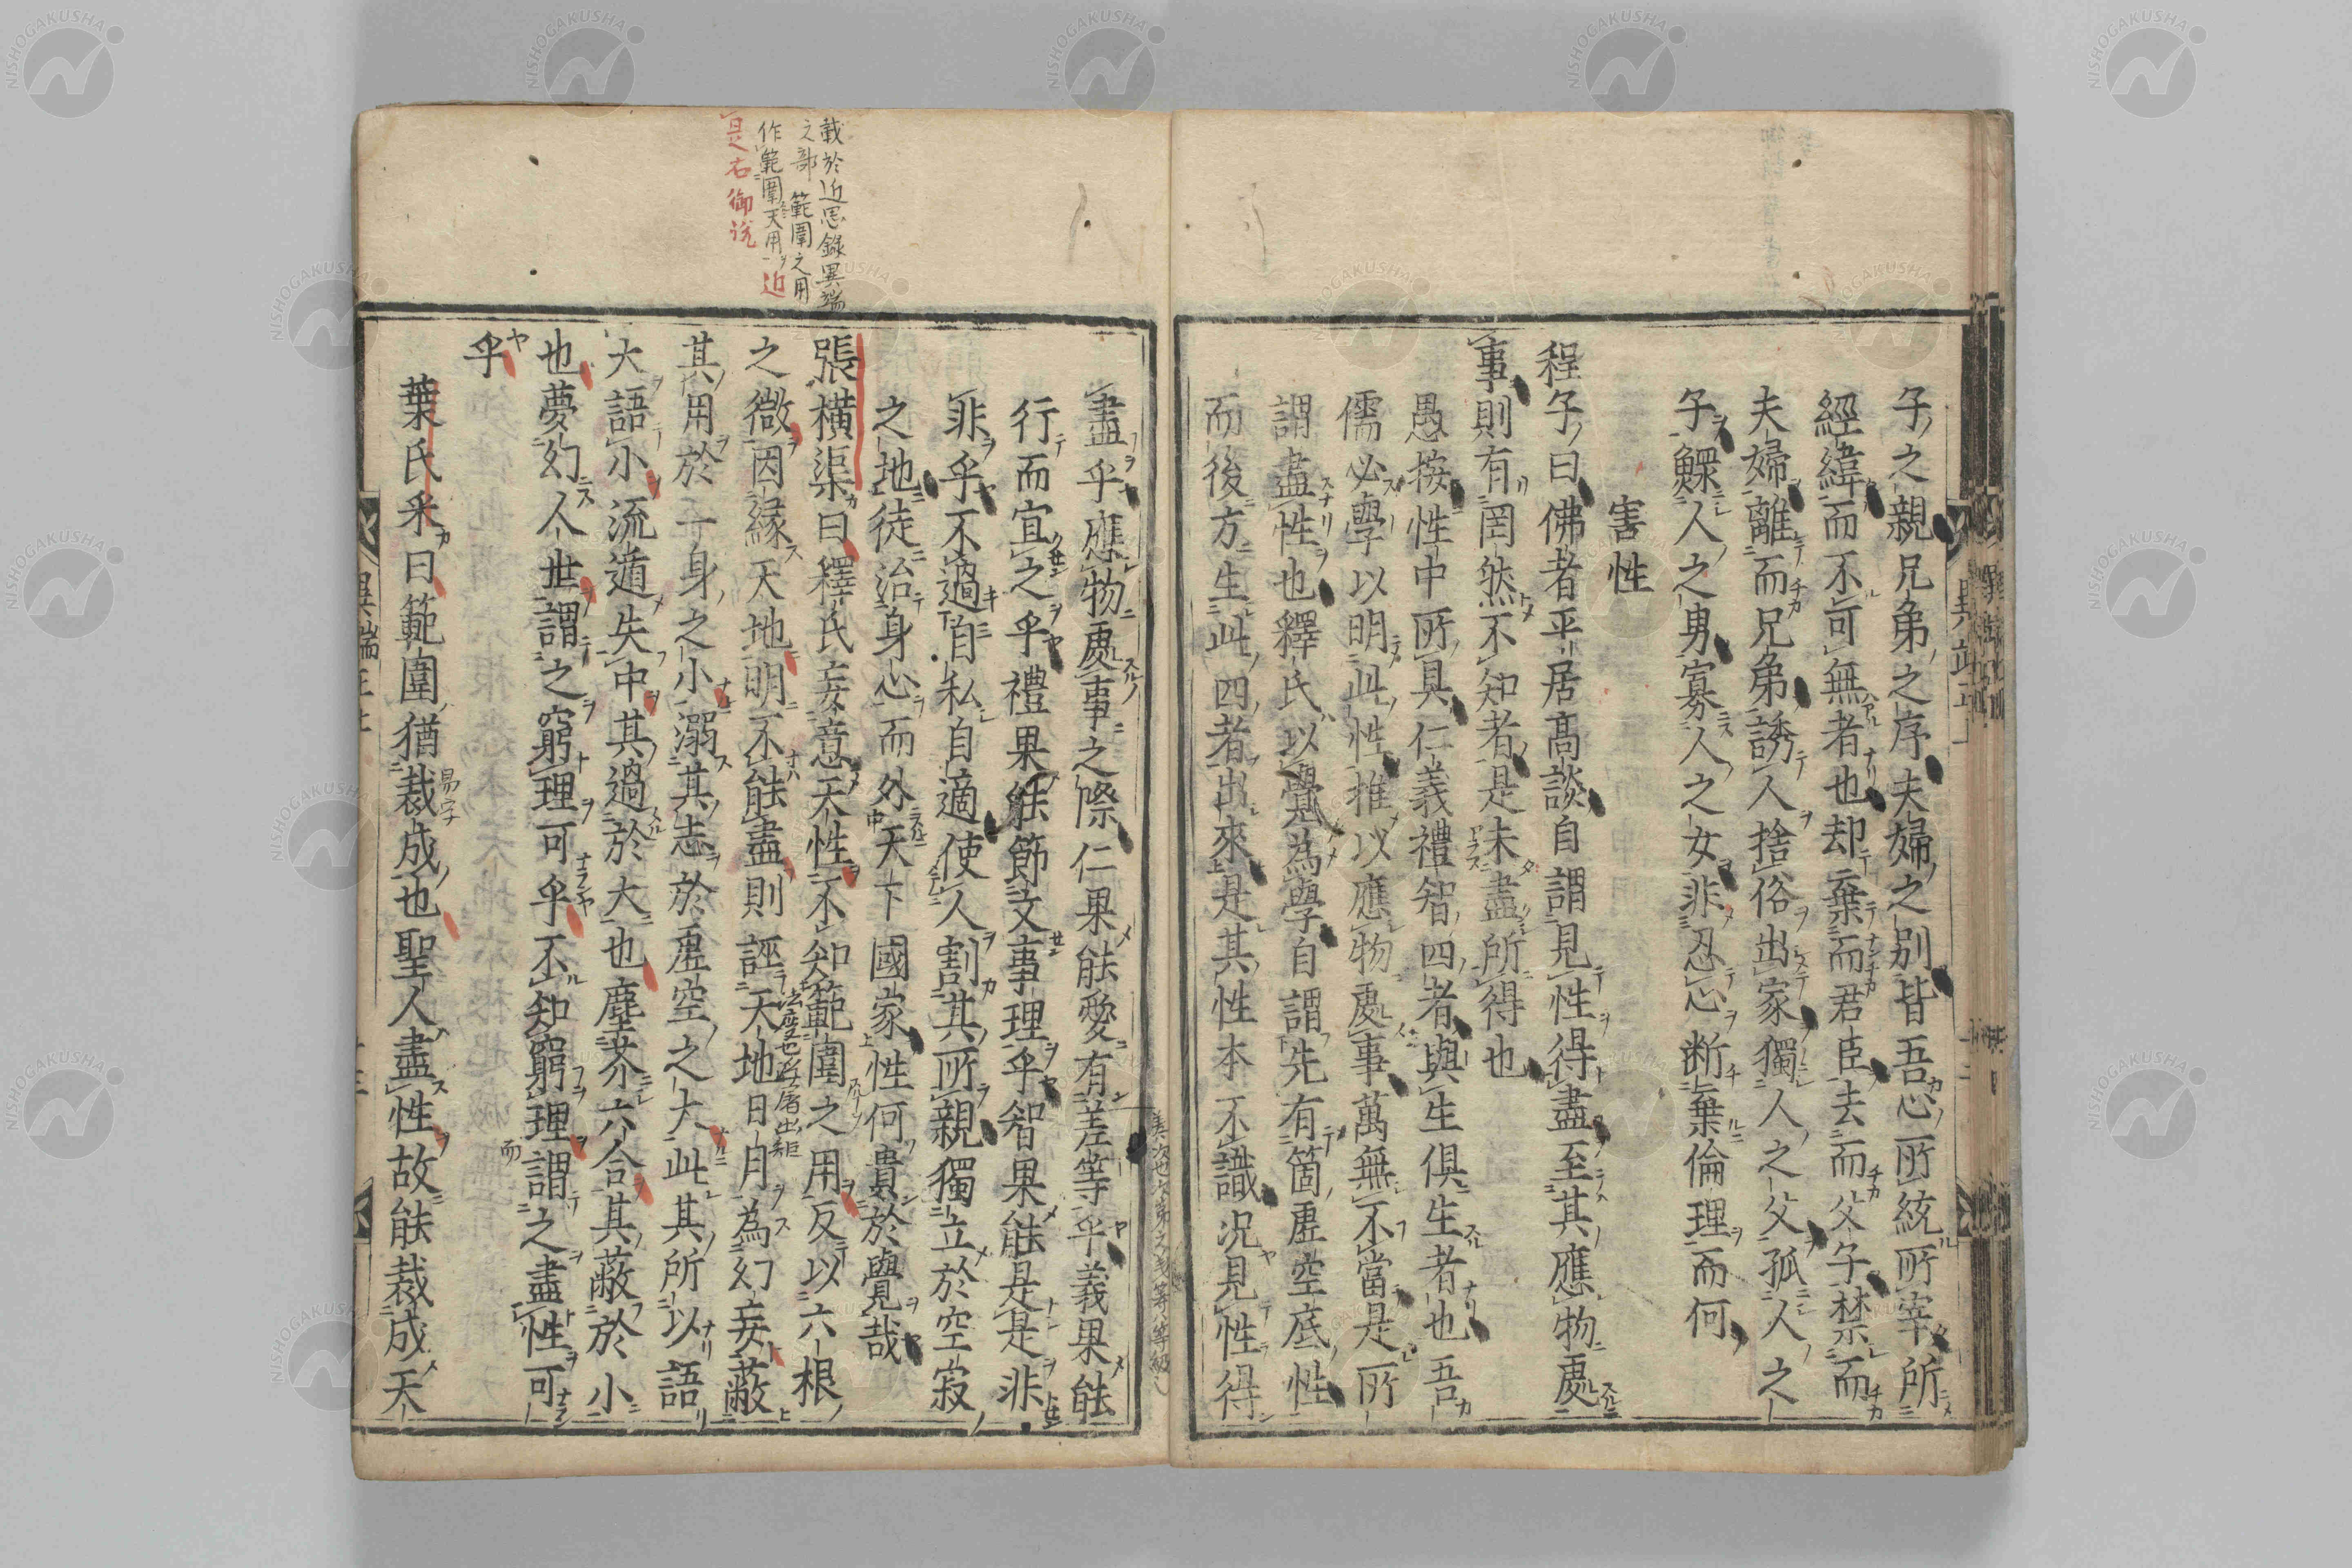 子之親兄弟之序夫婦之別皆吾心所統所宰所
經緯而不可無者也却棄而君臣去而父子禁而
夫婦離而兄弟誘人捨俗出家獨人之父孤人之
子鰥人之男寡人之女非忍心断棄倫理而何
害性
程子曰佛者平居高談自謂見性得盡至其應物處
事則有罔然不知者是未盡所得也
愚按性中所具仁義禮智四者與生俱生者也吾
儒必學以明此性推以應物處事萬無不當是所
謂盡性也釋氏以覺為學自謂先有箇虛空底性
而後方生此四者出來是其性本不識況見性得
盡乎應物處事之際仁果能愛有差等乎義果能
行而宜之乎禮果能節文事理乎智果能是是非
非乎不過自私自適使人割其所親獨立於空寂
之地徒治身心而外天下國家性何貴於覺哉
張橫渠曰釋氏妄意天性不知範圍之用反以六根
之微因緣天地明不能盡則誣天地日月為幻妄蔽
其用於一身之小溺其志於虛空之大此其所以語
大語小流遁失中其過於大也塵芥六合其蔽於小
也夢幻人世謂之窮理可乎不知窮理謂之盡性可
乎
葉氏采曰範圍猶裁成也聖人盡性故能裁成天
載於近思錄異端
之部 範圍之用
作範圍天用 近
是右御說
易字
而
NISHOGAKUSHA